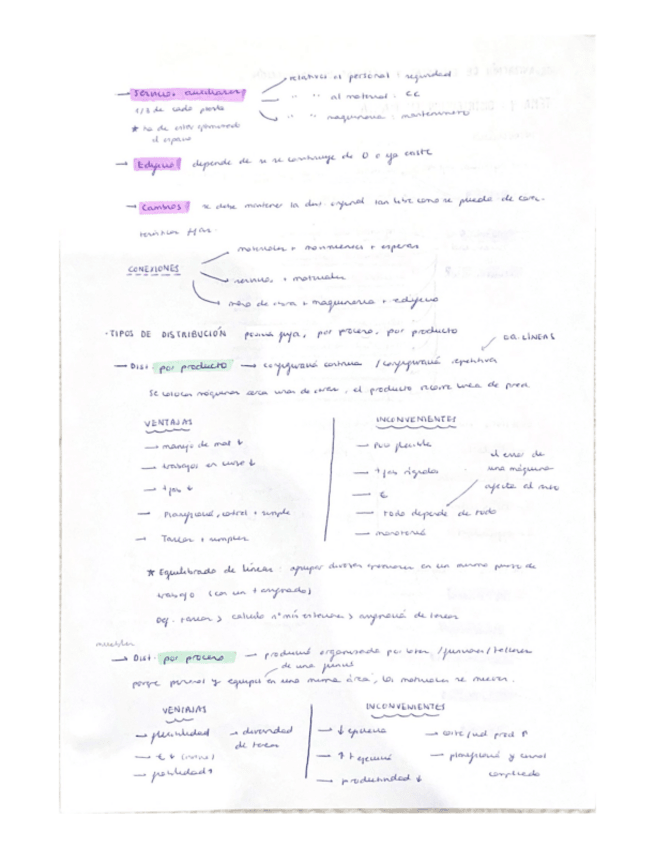 → Servicios auxiliares → relativos al personal : seguridad
" " al material : CC
" " maquinaria : mantenimiento
1/3 de cada planta
* ha de estar
el espacio
→ Edificio depende de si se construye de 0 o ya existe
→ Cambios se debe mantener la dist. tan libre como se pueda de carac-
terísticas fijas.
CONEXIONES
materiales + movimientos + esperas
servicios + materiales
mano de obra + maquinaria + edificio
· TIPOS DE DISTRIBUCIÓN posición fija, por proceso, por producto
→ Dist. por producto → configuració continua / configuració repetitiva
EQ. LÍNEAS
Se colocan máquinas cerca unas de otras, el producto recorre línea de prod.
VENTAJAS
→ manejo de mat ↓
→ trabajos en curso ↓
→ tfab ↓
→ Planificació, control + simple
→ Tareas + simples
INCONVENIENTES
→ Poco flexible
→ tfab rígidos
→ €
→ todo depende de todo
→ monotonía
el error de
una máquina
afecta al resto
* Equilibrado de líneas : agrupar diversas operaciones en un mismo puesto de
trabajo (con un t asignado)
Def. tareas > calculo nº min estaciones > asignació de tareas
→ Dist. por proceso → producció organizada por lotes / funciones / talleres
de una función
porque personal y equipos en una misma área, los materiales se mueven.
VENTAJAS
→ flexibilidad
→ € ↓
→ fiabilidad ↑
→ diversidad
de tareas
INCONVENIENTES
→ ↓ eficiencia
→ ↑ t ejecució
→ productividad ↓
→ coste/ud prod ↑
→ planificació y control
complicado